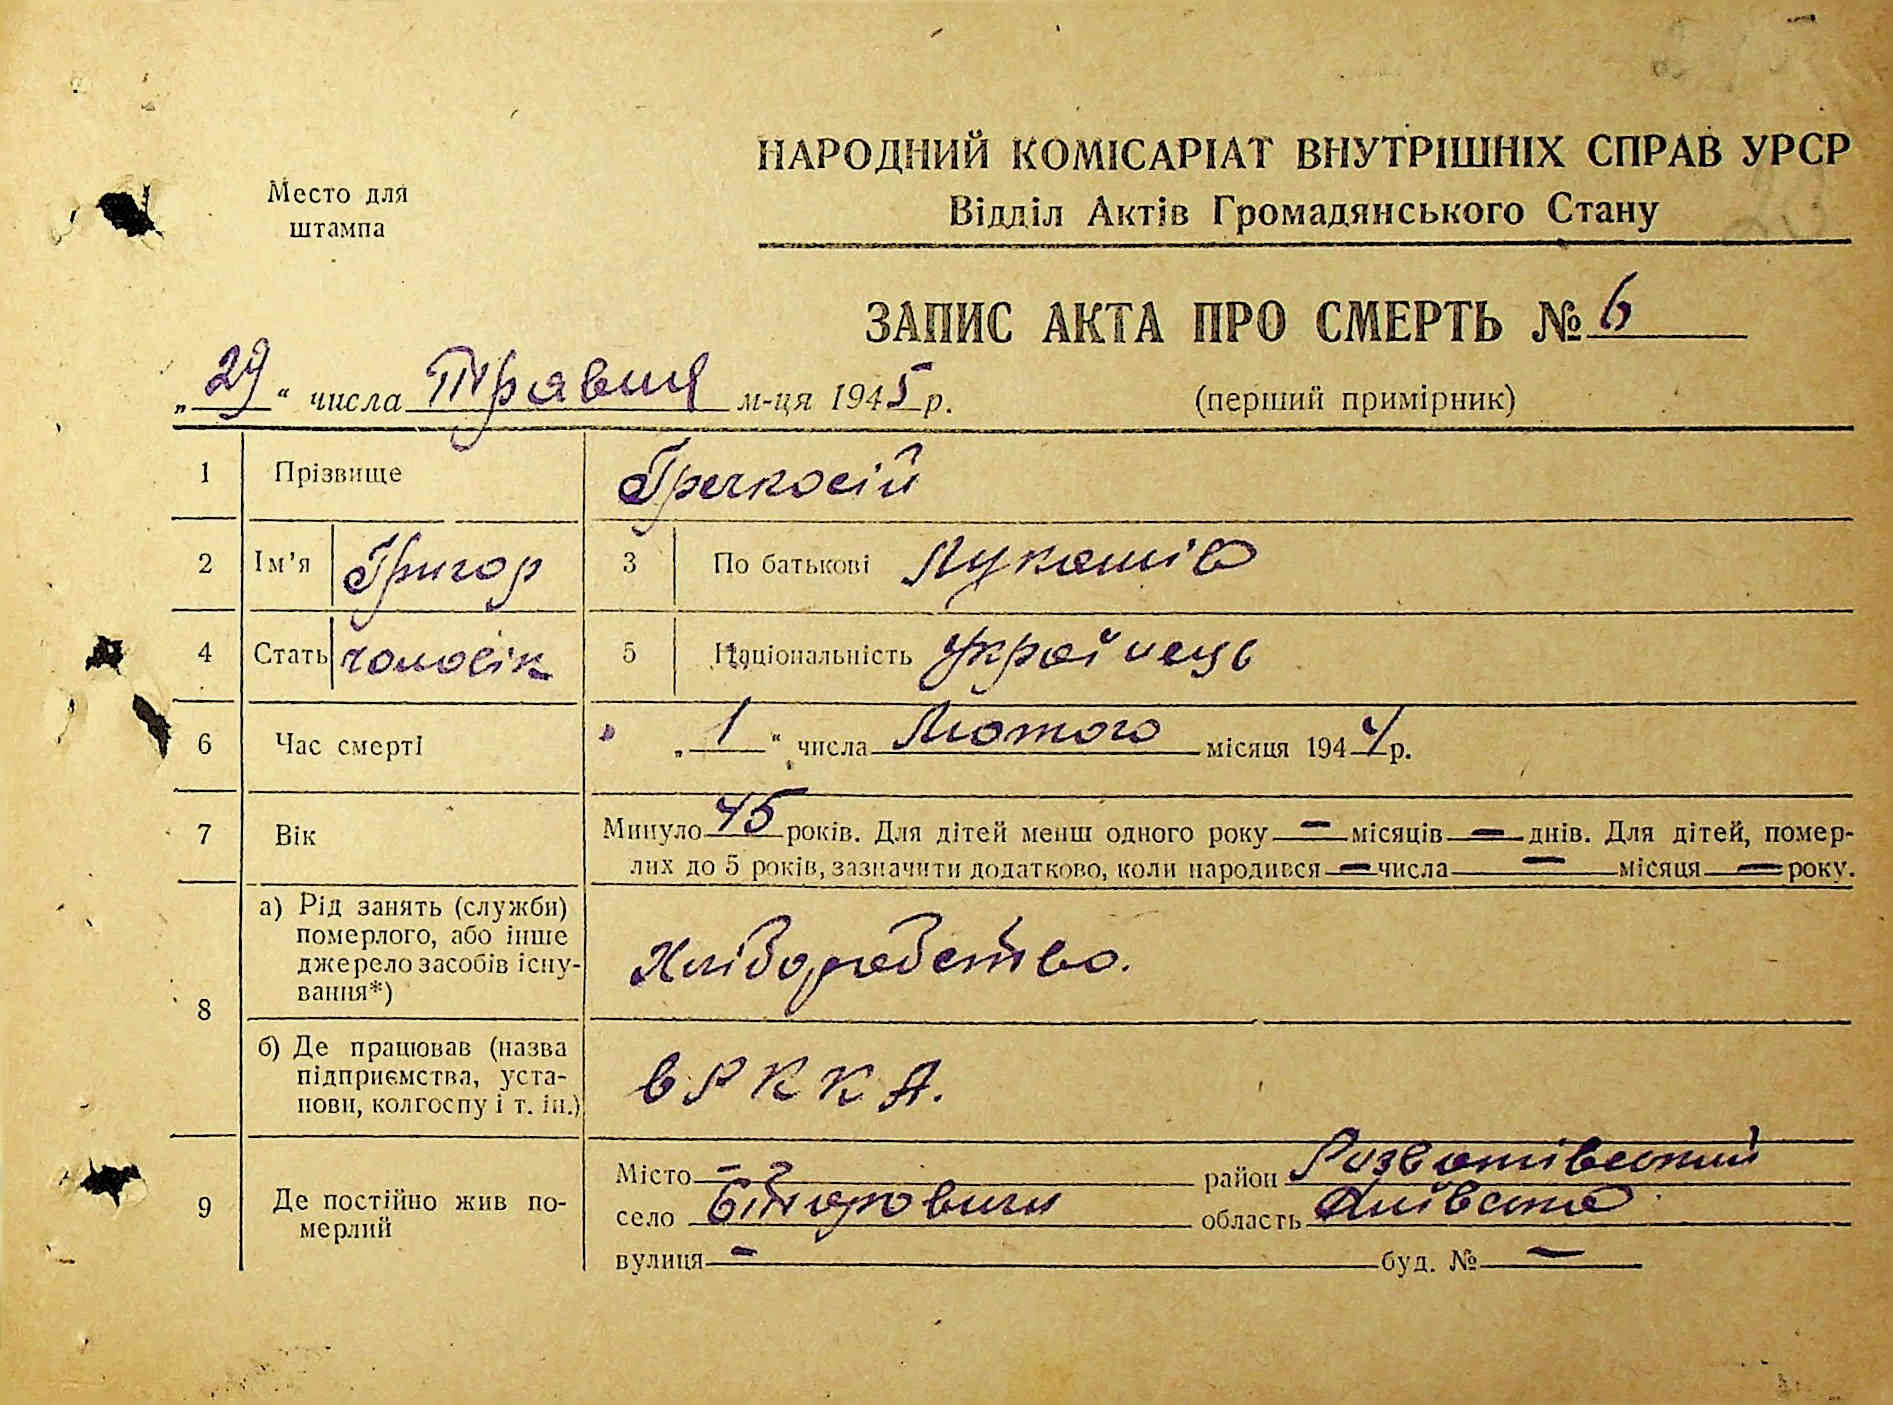 Место для
штампа
НАРОДНИЙ КОМІСАРІАТ ВНУТРІШНІХ СПРАВ УРСР
Відділ Актів Громадянського Стану
ЗАПИС АКТА ПРО СМЕРТЬ № 6
„29“ числа Травня м-ця 1945 р.
(перший примірник)
1 Прізвище Гречкосій
2 Ім’я Григор 3 По батькові Лукашів
4 Стать чоловік 5 Національність Українець
6 Час смерті „1“ числа Лютого місяця 1944 р.
7 Вік Минуло 45 років. Для дітей менш одного року — місяців — днів. Для дітей, помер-
лих до 5 років, зазначити додатково, коли народився — числа — місяця — року.
8 а) Рід занять (служби)
померлого, або інше
джерело засобів існу-
вання*)
Хліборобство.
б) Де працював (назва
підприємства, уста-
нови, колгоспу і т. ін.)
в РККА.
9 Де постійно жив по-
мерлий
Місто — район Розважівський
село область Київська
вулиця — буд. № —